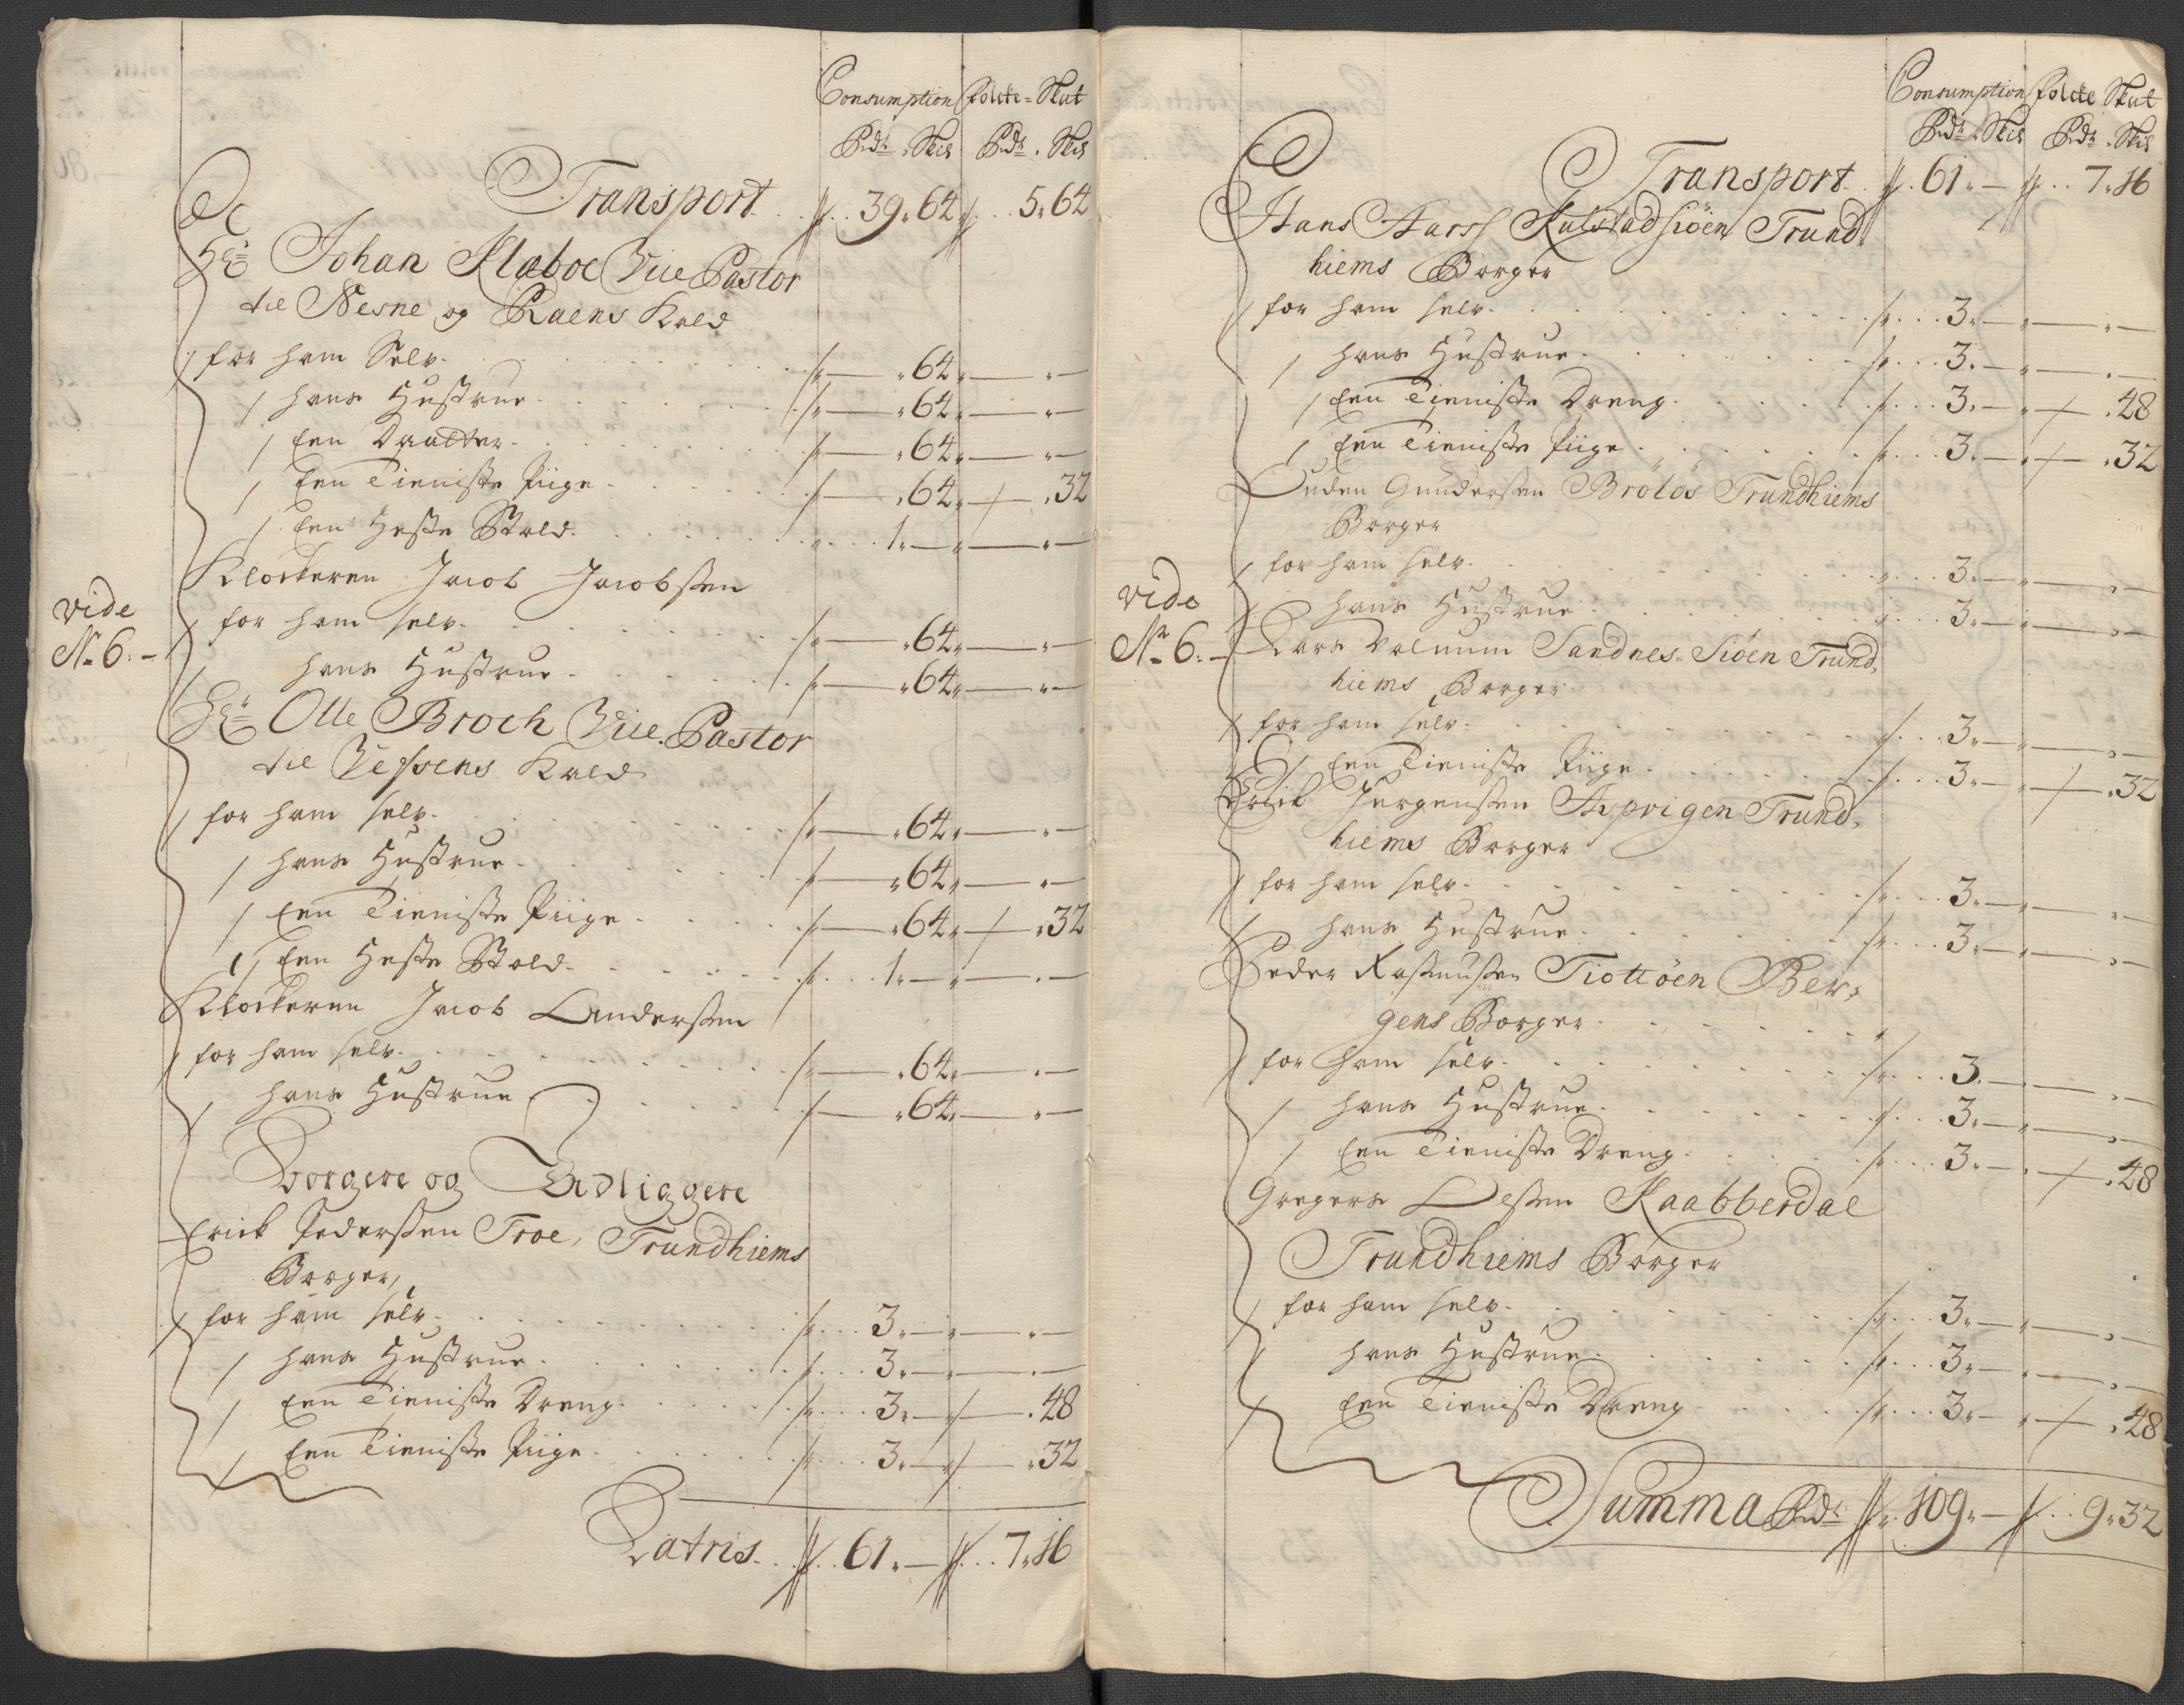 Consumption Folcke-Skat
Rdr. Skil Rdr. Skil
Transport . . 39. 64 . . 5. 64
Hr. Johan Klaboe Vice Pastor
til Nesne og Raens Kald
for ham Selv . . — . 64. — . —
1 hans Hustrue . . — . 64. — . —
1 Een Daatter . . — . 64. — . —
1 Een Tieniste Piige . . — . 64. — . 32
1 Een Heste Stald . . 1. — . — . —
Klockeren Jacob Jacobsen
vide
No. 6. -
1 for ham selv . . — . 64. — . —
1 hans Hustrue . . — . 64. — . —
Hr. Olle Broch Vice Pastor
til Vefsens Kald
1 for ham selv . . — . 64. — . —
1 hans Hustrue . . — . 64. — . —
1 Een Tieniste Piige . . — . 64. — . 32
1 Een Heste Stald . . 1. — . — . —
Klockeren Jacob Andersen
1 for ham selv . . — . 64. — . —
1 hans Hustrue . . — . 64. — . —
Borgere og Udliggere
Erick Pedersen Troe, Trundhiems
Borger,
1 for ham selv . . 3. — . — . —
1 hans Hustrue . . 3. — . — . —
1 Een Tieniste Dreng . . 3. — . — . 48
1 Een Tieniste Piige . . 3. — . — . 32
Latris . . 61. — . . 7. 16
Consumption Folcke Skat
Rdr. Skil Rdr. Skil
Transport . . 61. — . . 7. 16
Hans Hanss Kulstadsiöen Trund-
hiems Borger
1 for ham selv . . 3. — . — . —
1 hans Hustrue . . 3. — . — . —
1 Een Tieniste Dreng . . 3. — . — . 48
1 Een Tieniste Piige . . 3. — . — . 32
Gundersen Brölös Trundhiems
Borger
1 for ham selv . . 3. — . — . —
vide
No. 6. -
1 hans Hustrue . . 3. — . — . —
Lars Sandnes-Siöen Trund-
hiems Borger
1 for ham selv . . 3. — . — . —
1 Een Tieniste Piige . . 3. — . — . 32
Erick Jørgensen Trund-
hiems Borger
1 for ham selv . . 3. — . — . —
1 hans Hustrue . . 3. — . — . —
Peder Rasmussen Tiottöen Ber-
gens Borger
1 for ham selv . . 3. — . — . —
1 hans Hustrue . . 3. — . — . —
1 Een Tieniste Dreng . . 3. — . — . 48
Gregers Olsen Kaabberdal
Trundhiems Borger
1 for ham selv . . 3. — . — . —
hans Hustrue . . 3. — . — . —
1 Een Tieniste Dreng . . 3. — . — . 48
Summa Rdr . . 109. — . . 9. 32